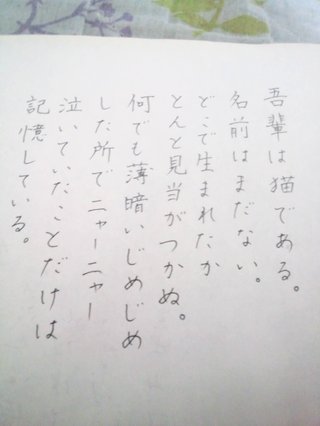 吾輩は猫である。
名前はまだない。
どこで生まれたか
とんと見当がつかぬ。
何でも薄暗いじめじめ
した所でニャーニャー
泣いていたことだけは
記憶している。